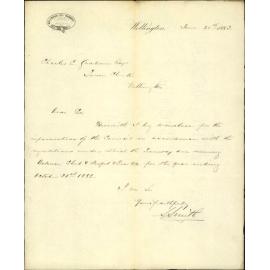 Wellington, June 20th 1883
Charles C. Graham Esq
Town Clerk
Wellington
Dear Sir
Herewith I beg to enclose for the
information of the Council in accordance with the
regulations under which the Tramway are running
Balance Sheet & Profit & Loss a/c for the year ending
October 31st 1882.
I am Sir
Yours faithfully
S Smith